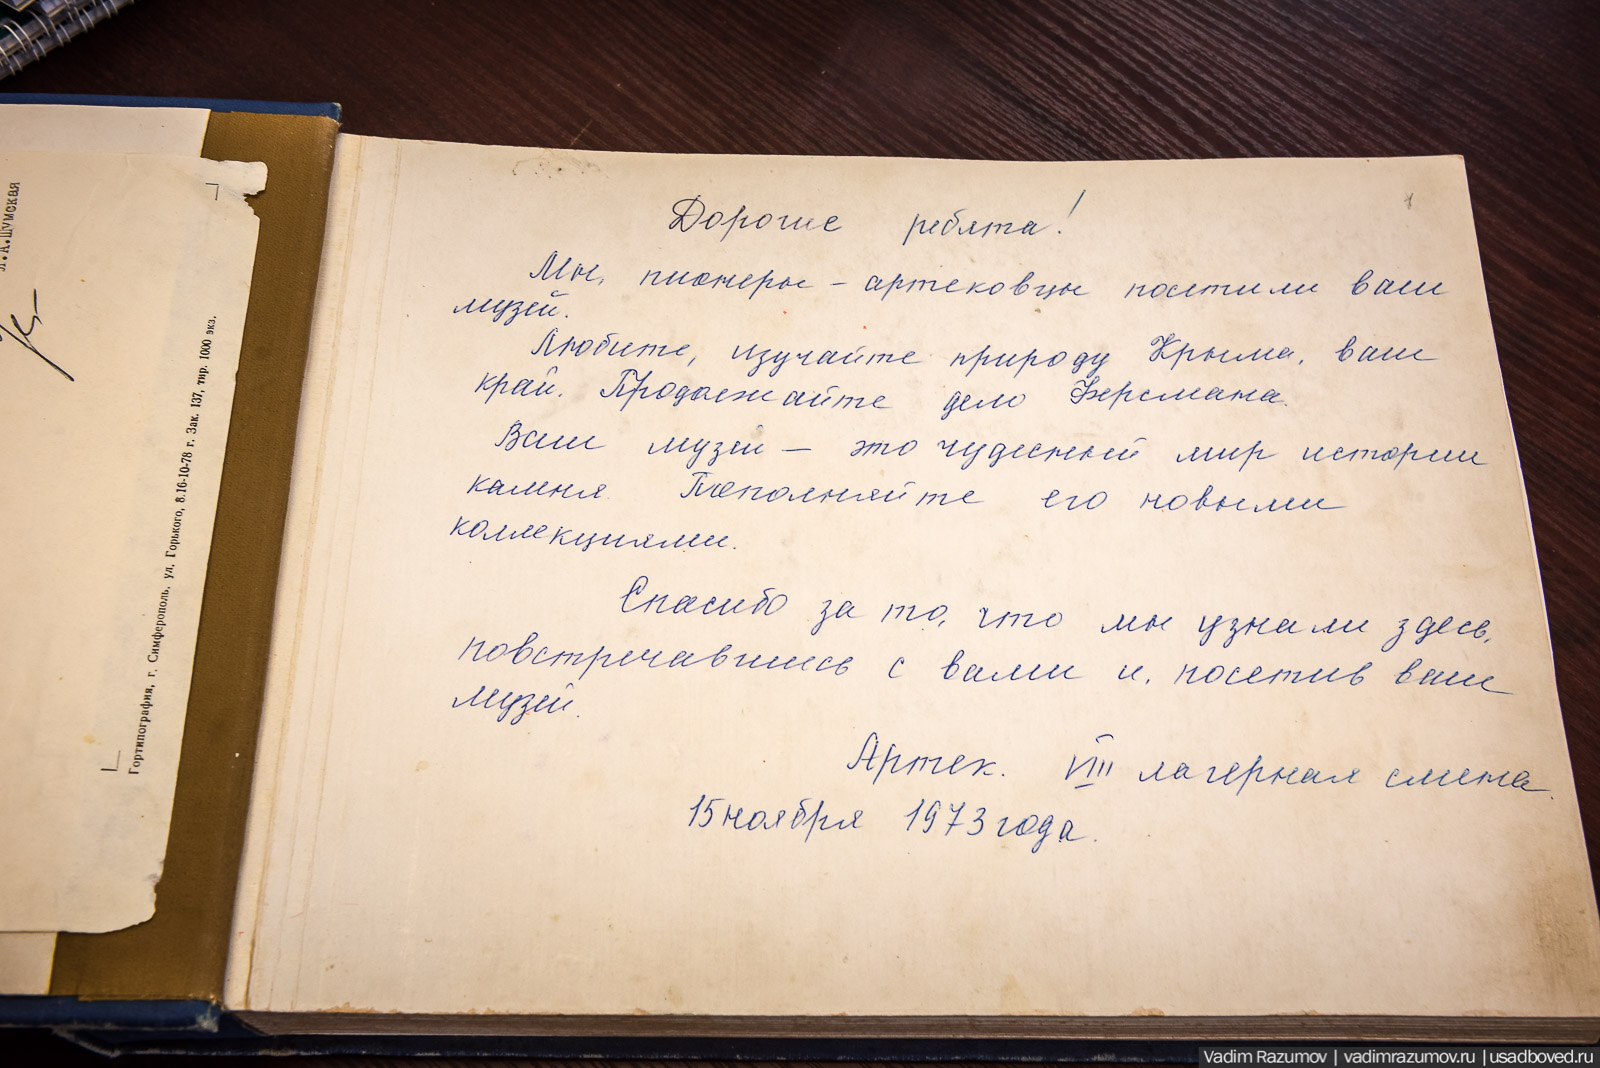 Л.А.Шумская
Гортипография, г. Симферополь, ул. Горького, 8.16-10-78 г. Зак. 137, тир. 1000 экз.
Дорогие ребята!
Мы, пионеры – артековцы посетили ваш
музей.
Любите, изучайте природу Крыма, ваш
край. Продолжайте дело Ферсмана.
Ваш музей – это чудесный мир истории
камня. Пополняйте его новыми
коллекциями.
Спасибо за то, что мы узнали здесь,
повстречавшись с вами и, посетив ваш
музей.
Артек. VIII лагерная смена.
15 ноября 1973 года.
Vadim Razumov | vadimrazumov.ru | usadboved.ru